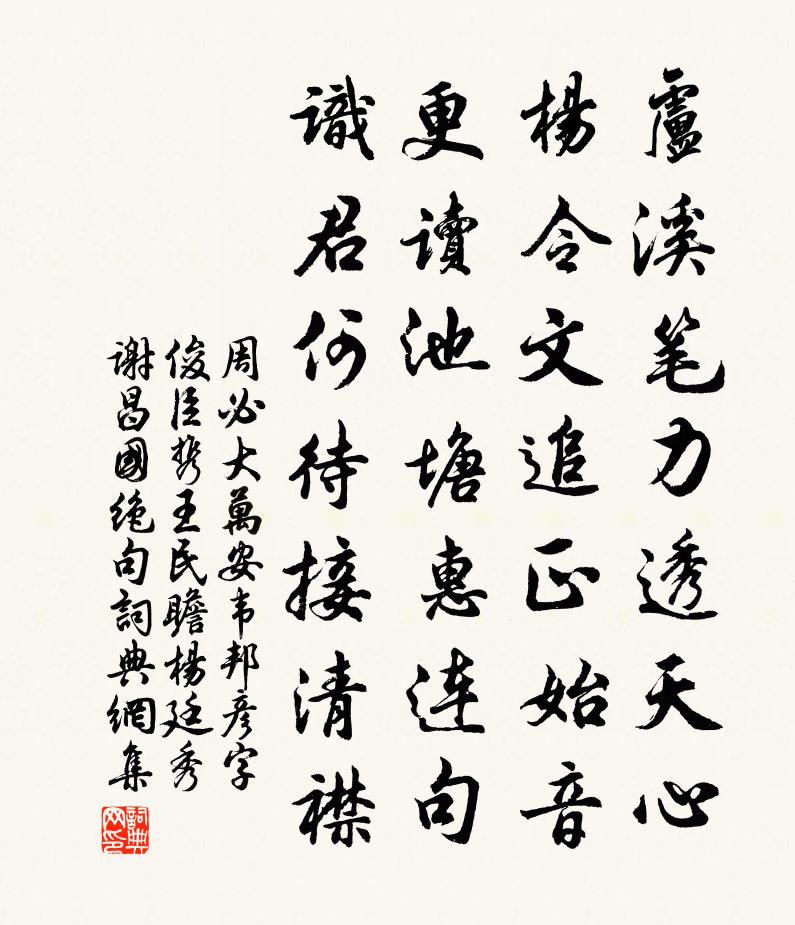 盧溪笔力透天心
楊令文追正始音
更讀池塘惠连句
識君何待接清襟
周必大萬安韦邦彦字
俊臣携王民瞻楊廷秀
谢昌國绝句詞典網集
詞典网印